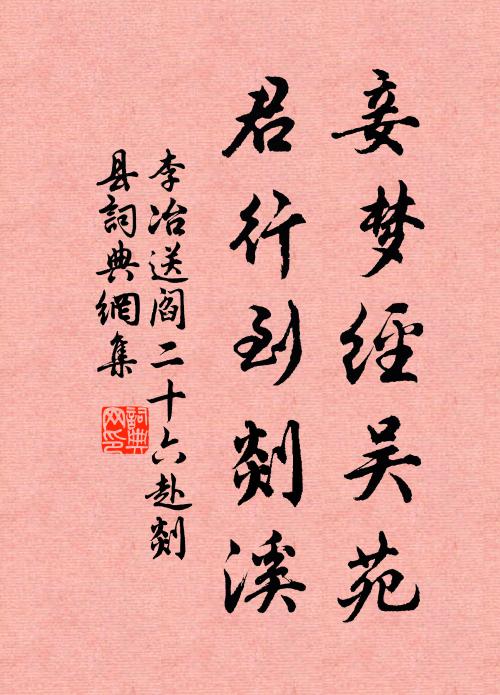 妾梦经吴苑
君行到剡溪
李冶送阎二十六赴剡
县詞典網集
詞典网印